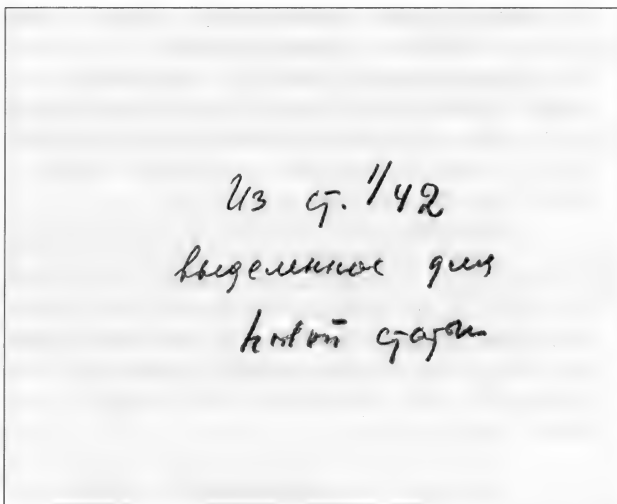 Из ст. 1/42
выделенное для
новой статьи